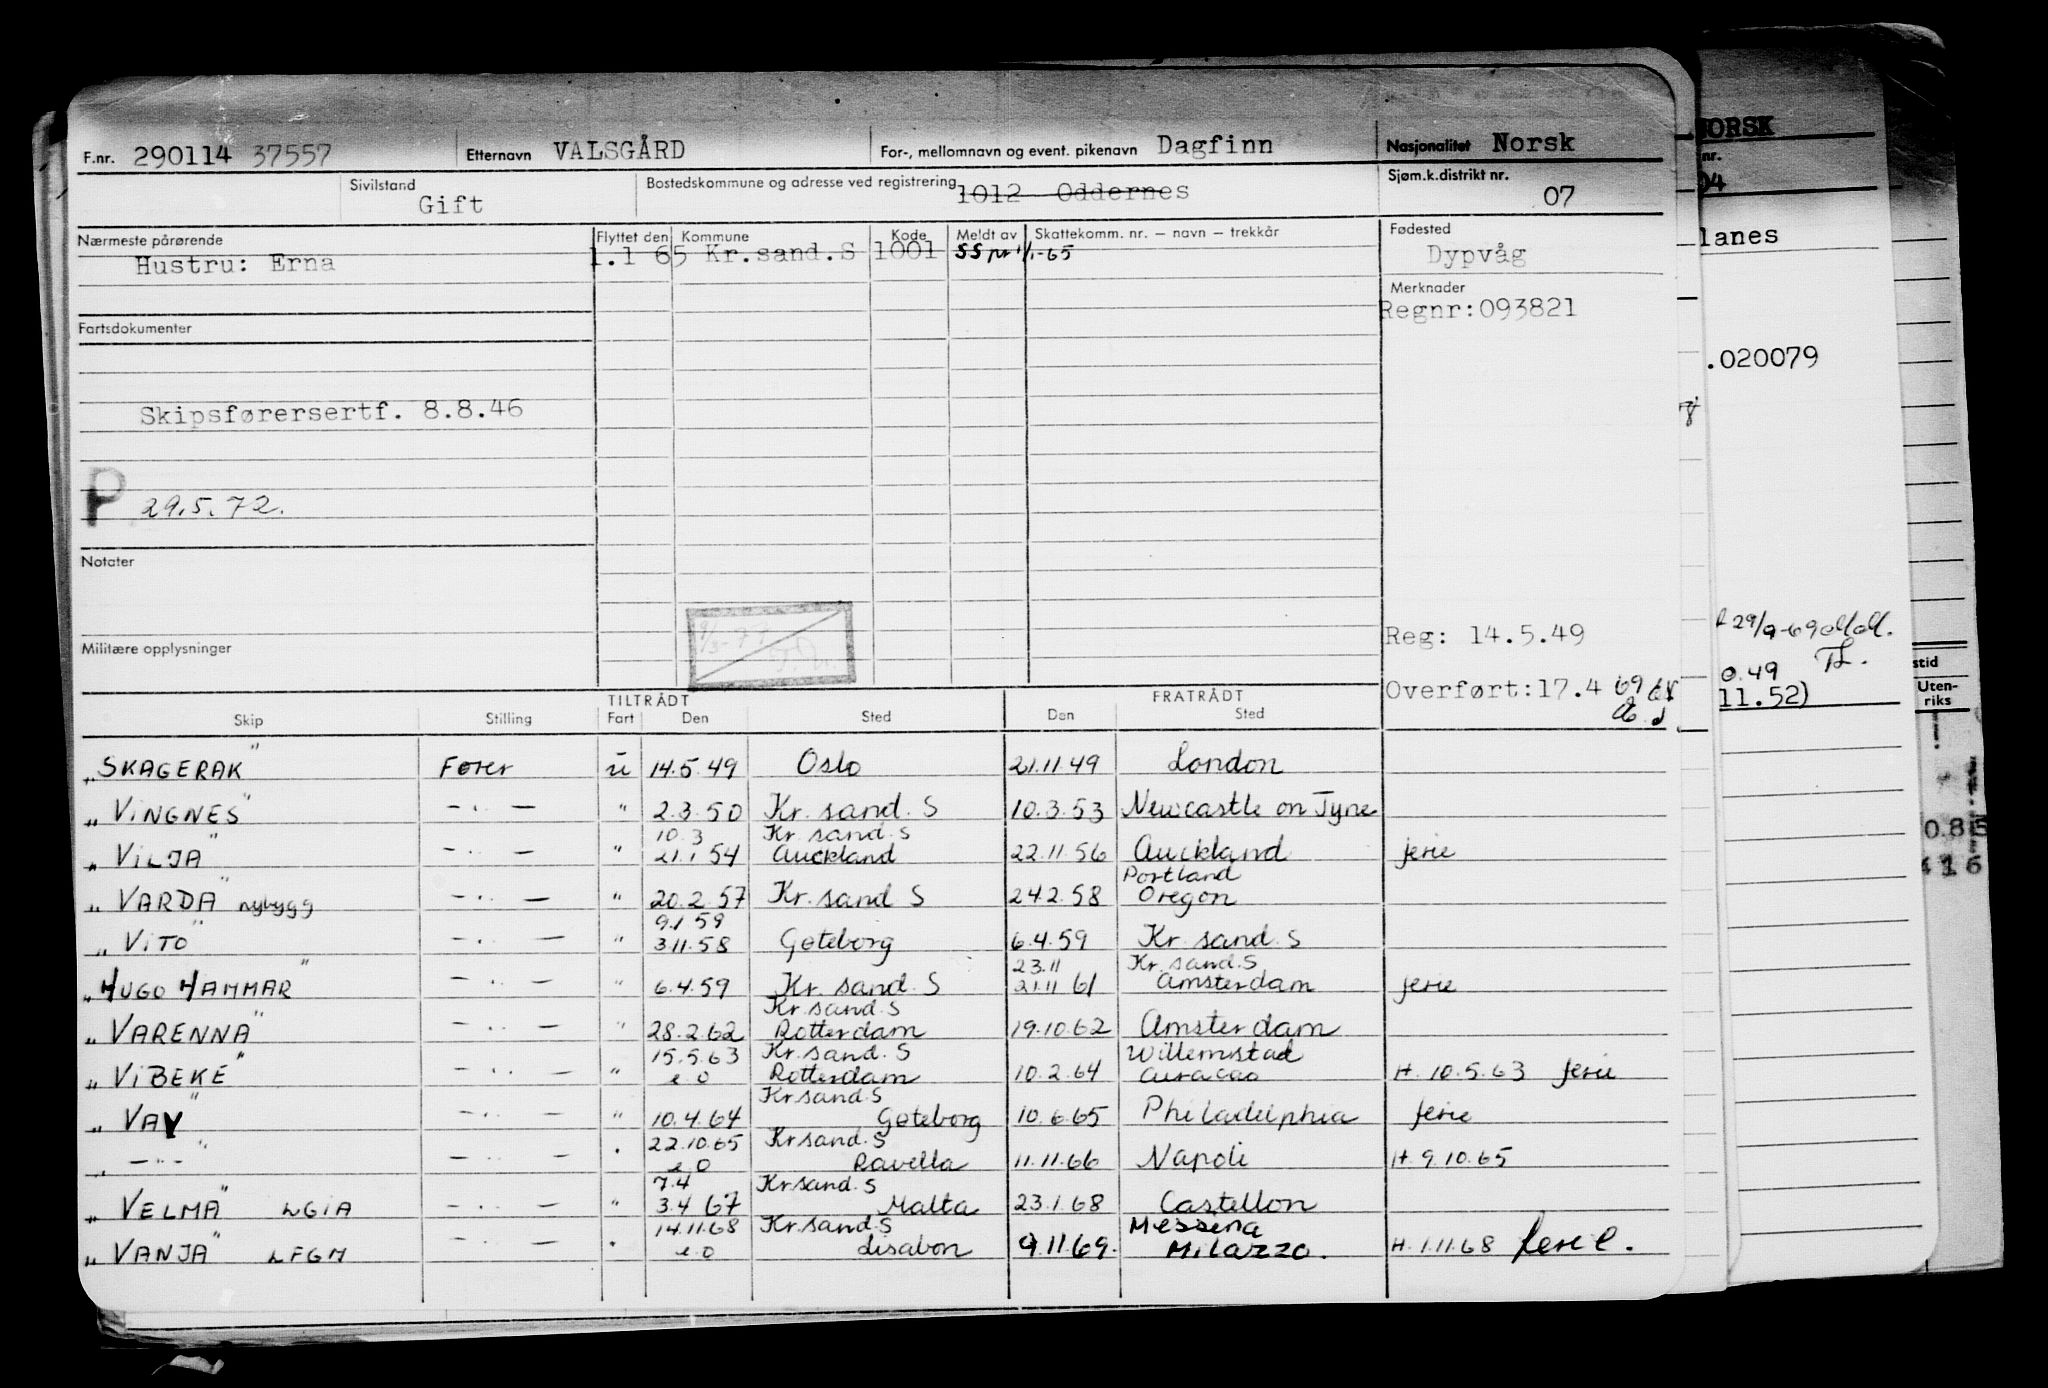 F.nr. 290114 37557 Etternavn VALSGÅRD For-, mellomnavn og event. pikenavn Dagfinn Nasjonalitet Norsk
Sivilstand Gift Bostedskommune og adresse ved registrering 1012 Oddernes Sjøm.k.distrikt nr. 07
Nærmeste pårørende Flyttet den Kommune Kode Meldt av Skattekomm. nr. – navn – trekkår Fødested
Hustru: Erna 1.1 65 Kr.sand.S 1001 SS pr 1/1-65 Dypvåg
Merknader
Regnr:093821
Fartsdokumenter
Skipsførersertf. 8.8.46
P 29.5.72.
Notater
Militære opplysninger
Reg: 14.5.49
Overført:17.4 69
TILTRÅDT FRATRÅDT
Skip Stilling Fart Den Sted Den Sted
„SKAGERAK" Fører u 14.5.49 Oslo 21.11.49 London
„VINGNES" -..- " 2.3.50 Kr. sand. S 10.3.53 Newcastle on Tyne
10.3 Kr. sand. S
„VILJA" -..- " 21.1 54 Auckland 22.11.56 Auckland ferie
Portland
„VARDA" nybygg -..- " 20.2.57 Kr. sand S 24.2.58 Oregon
9.1 59
„VITO" -..- " 3.11.58 Gøteborg 6.4.59 Kr. sand. S
23.11 Kr. sand. S
„HUGO HAMMAR" -..- " 6.4.59 Kr. sand. S 21.11 61 Amsterdam ferie
Kr. sand. S
„VARENNA" -..- " 28.2.62 Rotterdam 19.10.62 Amsterdam
15.5.63 Kr. sand. S Willemstad
„VIBEKE" -..- " e.o Rotterdam 10.2.64 Curacao H. 10.5.63 ferie
Kr sand. S
„VAV" -..- " 10.4.64 Gøteborg 10.6.65 Philadelphia ferie
22.10.65 Kr sand. S
„-..-" -..- " e.o Ravella 11.11.66 Napoli H 9.10.65
7.4 Kr sand. S
„VELMA" LGIA -..- " 3.4 67 Malta 23.1.68 Castellon
14.11.68 Kr sand S Messina
„VANJA" LFGM -..- " e.o Lisabon 9.11.69. Milazzo. H. 1.11.68 ferie.
NORSK
nr.
04
lanes
.020079
29/9-69
0.49
11.52)
stid
Uten-
riks
0.85
416